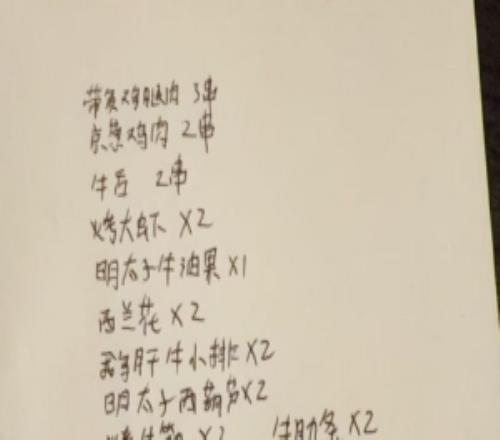 带皮鸡腿肉 3串
京葱鸡肉 2串
牛舌 2串
烤大虾 X2
明太子牛油果 X1
西兰花 X2
鹅肝牛小排 X2
明太子西葫芦 X2
X2 牛肋条 X2